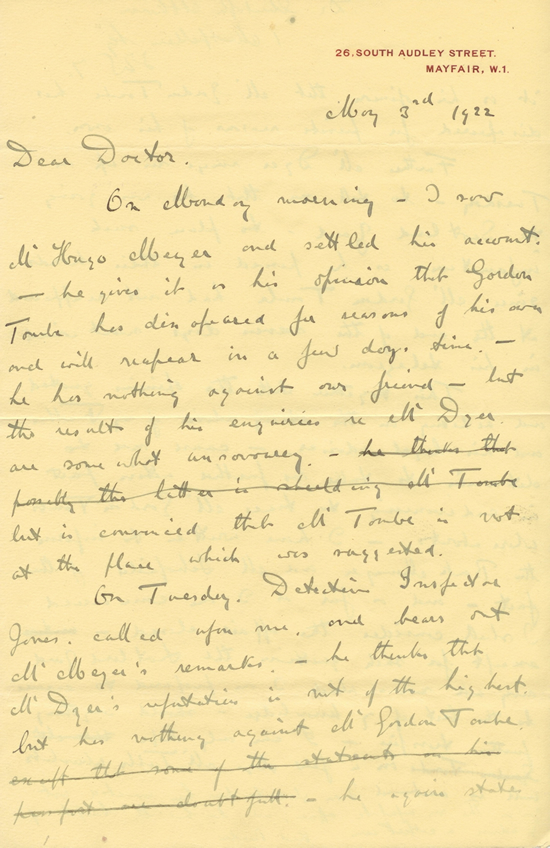 26, SOUTH AUDLEY STREET.
MAYFAIR, W.1.
May 3rd 1922
Dear Doctor.
On Monday morning – I saw
Mr Hugo Meyer and settled his account.
– he gives it as his opinion that Gordon
Tombe has disapeared for reasons of his own
and will reapear in a few days time. –
he has nothing against our friend – but
the results of his enquiries re Mr Dyer.
are some what unsavoury. – he thinks that
possibly the latter is shielding Mr Tombe
but is convinced that Mr Tombe is not
at the place which was suggested.
On Tuesday. Detective Inspector
Jones. called upon me, and bears out
Mr Meyer's remarks. – he thinks that
Mr Dyer's reputation is not of the highest.
but has nothing against Mr Gordon Tombe.
except that some of the statements on his
passport are doubtfull. – he again states